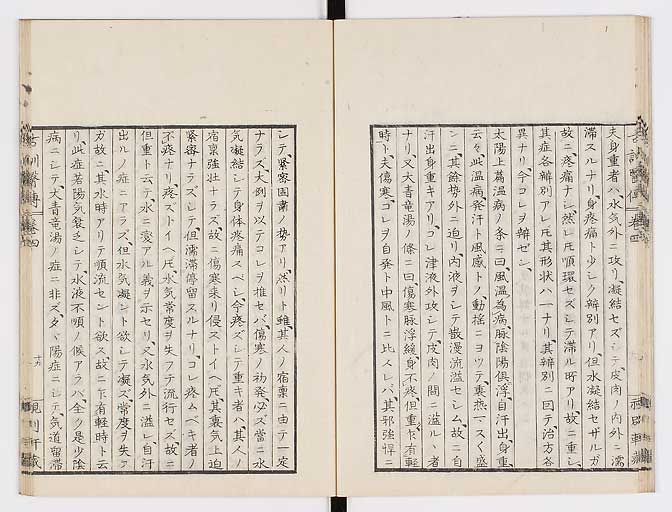 夫身重者ハ、水気外ニ攻リ、凝結セズシテ、皮肉ノ内外ニ濡
滞スルナリ、身疼痛ト少シク辨別アリ、但水凝結セザルガ
故ニ、疼痛ナシ、然レ𪜈順環セズシテ、滞ル所アリ、故ニ重シ、
其症各辨別アレ𪜈、其形状ハ一ナリ、其辨別ニ因テ、治方各
異ナリ、今コレヲ辨ゼン、
太陽上篇温病ノ条ニ曰、風温為病、脉陰陽倶浮、自汗出身重、
云々、此温病発汗ト風感トノ動揺ニヨツテ、裏熱一スク盛
ンニ、其餘勢外ニ迫リ、内液ヲシテ散漫流溢セシム、故ニ自
汗出身重キアリ、コレ津液外攻シテ、皮肉ノ間ニ溢ルヽ者
ナリ、又大青竜湯ノ條ニ曰、傷寒脉浮緩、身不疼、但重、乍有軽
時ト、夫傷寒、コレヲ自発ト中風トニ比スレバ、其邪強悍ニ
シテ、緊密固肅ノ勢アリ、然リト雖、其人ノ宿稟ニ由テ一定
ナラズ、大例ヲ以テコレヲ推セバ、傷寒ノ初発、必ズ當ニ水
気凝結シテ、身体疼痛スベシ、今疼ズシテ重キ者ハ、其人ノ
宿稟強壮ナラズ、故ニ傷寒来リ侵ストイヘ𪜈、其裏気上迫
緊密ナラズシテ、但濡滞停留スルナリ、コレ疼ムベキ者ノ
不疼ナリ、疼ズトイヘ𪜈、水気常度ヲ失フテ流行セズ、故ニ
但重ト云テ、水ニ変アル義ヲ示セリ、又水気外ニ溢レ、自汗
出ルノ症ニアラズ、但水気凝ント欲シテ凝ズ、常度ヲ失フ
ガ故ニ、其水時アリテ順流セント欲ス、故ニ乍有軽時ト云
リ、此症若陽気衰乏シテ、水液不順ノ候アラバ、全ク是少陰
病ニシテ、大青竜湯ノ症ニ非ズ、夕ヽ陽症ニシテ、気道留滞
古訓醫傳
巻四